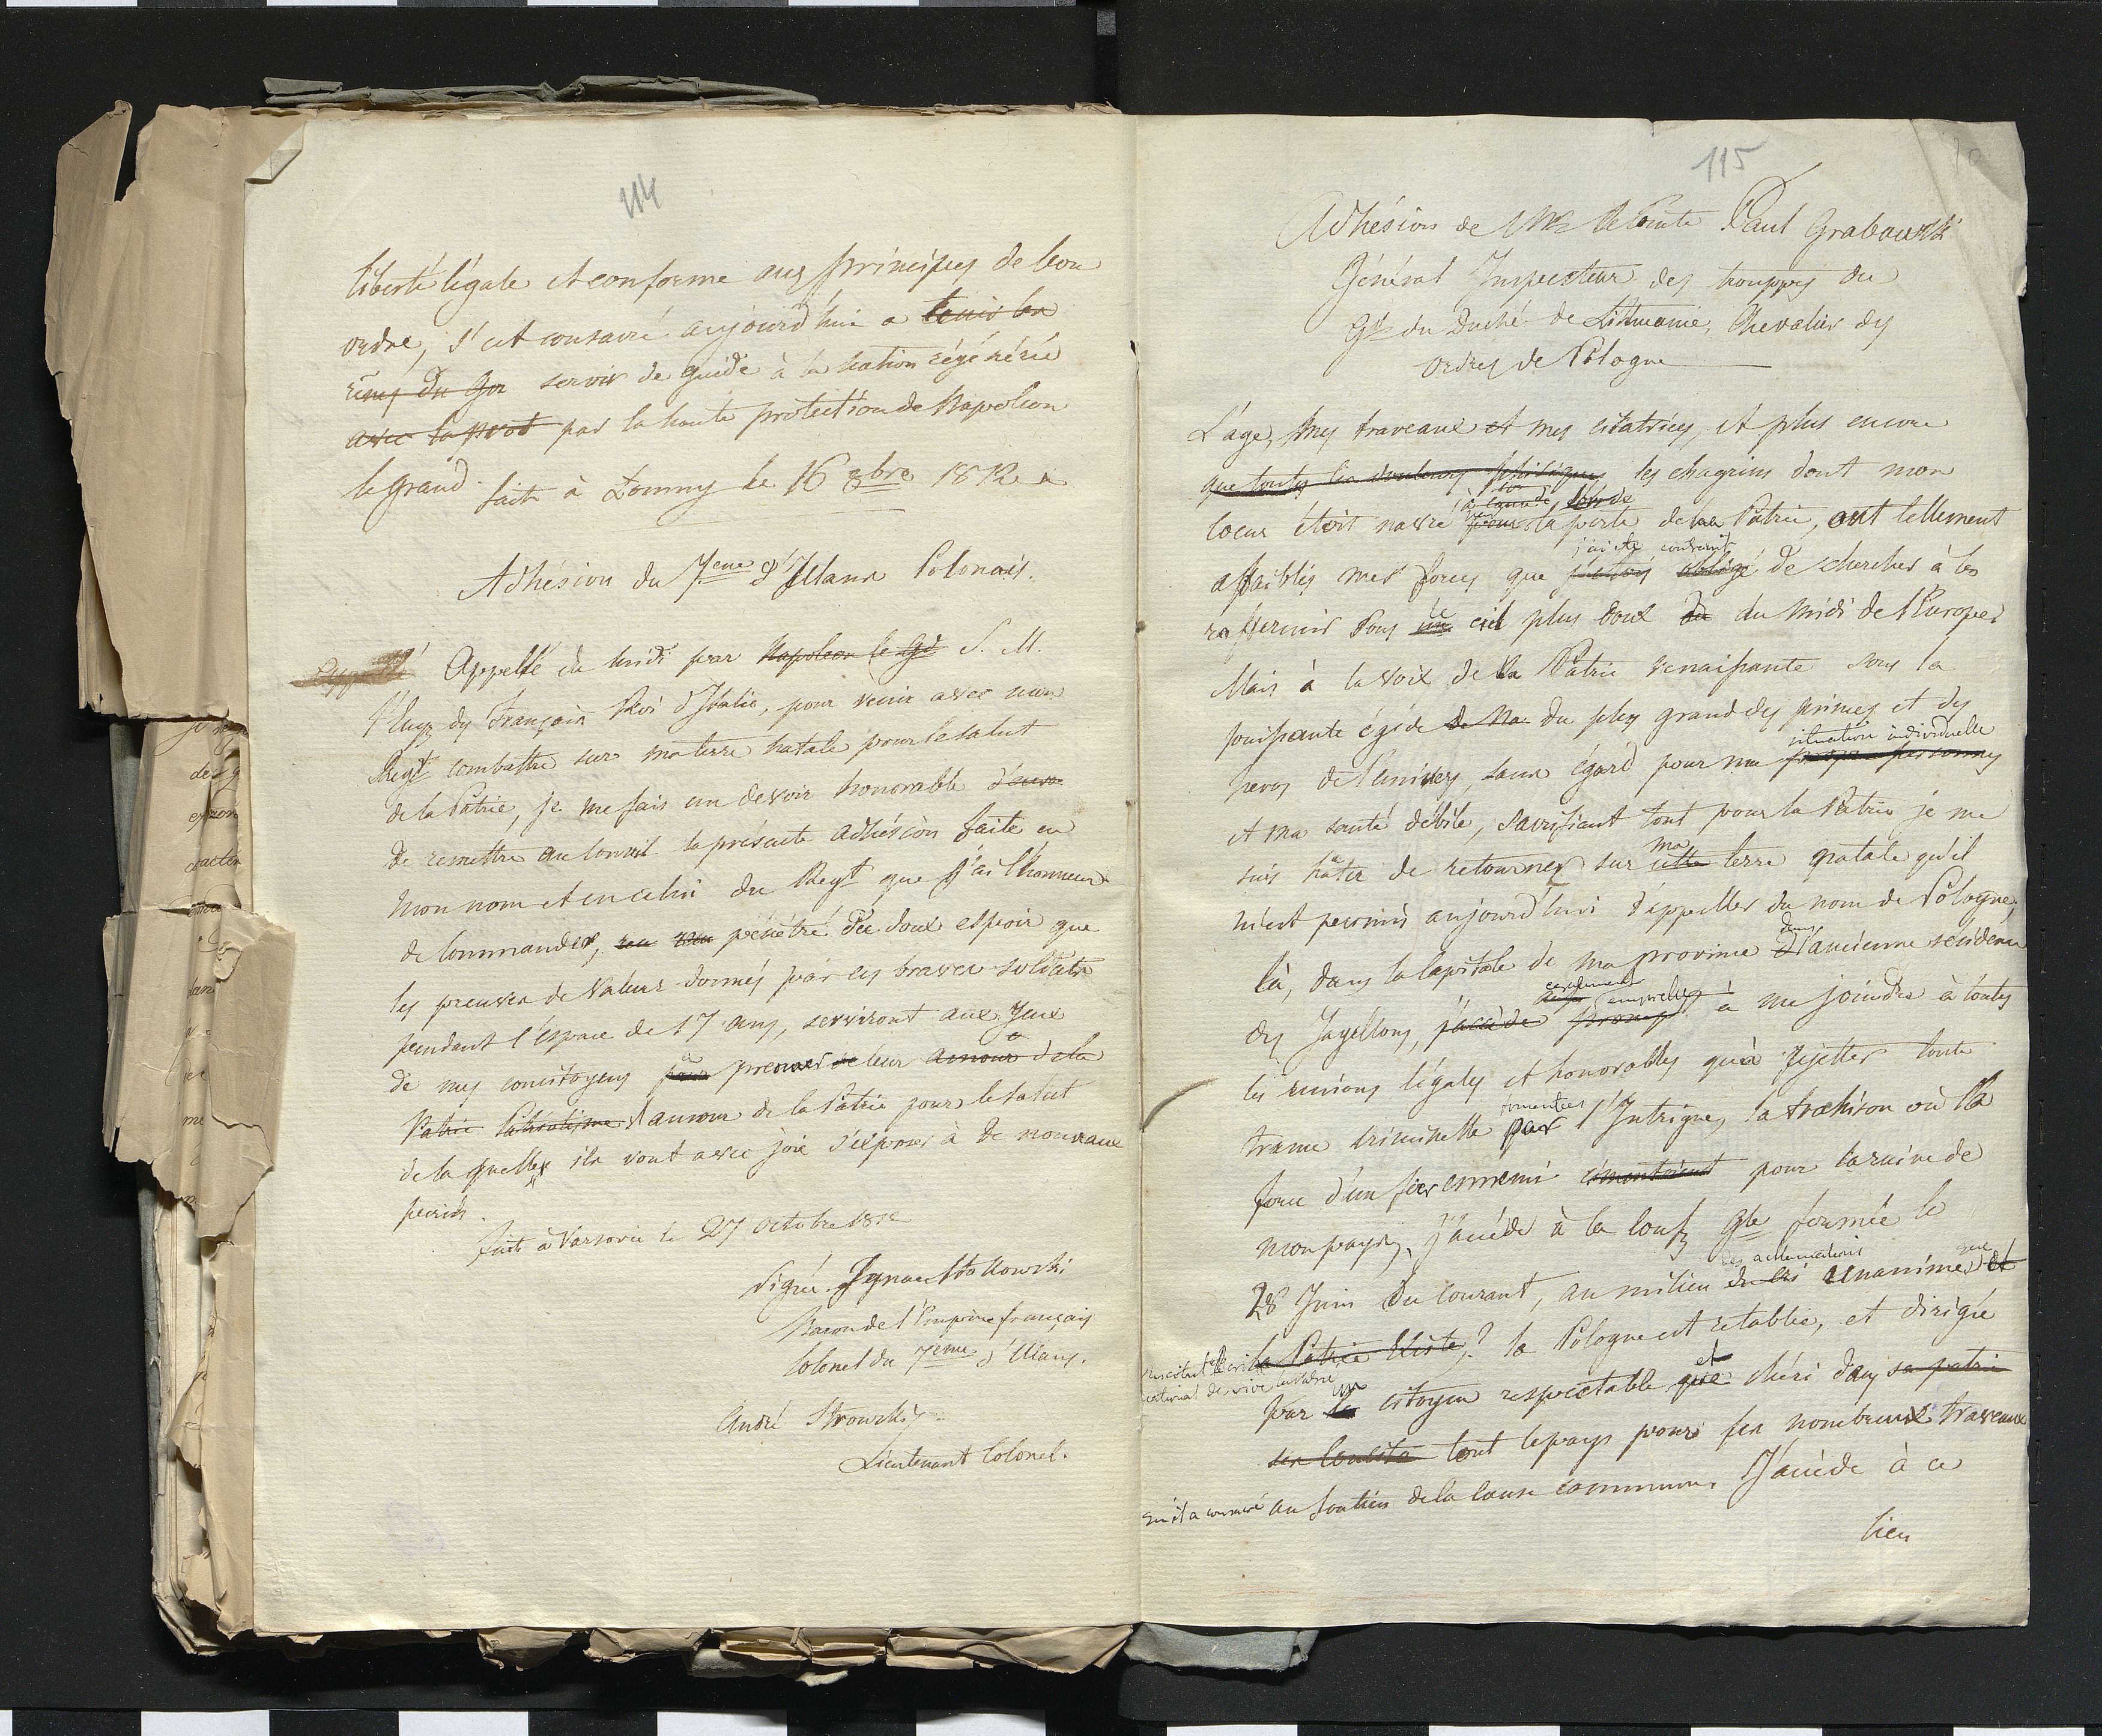 114
liberté légale et conforme aux principes de bon
ordre, s'est consacré aujourd'hui a tenir les
rênes du Gou servir de guide à la nation régénérée
avec la prot par la haute protection de Napoléon
le grand.
fait à Lomny le 16 8bre 1812
Adhésion du 7eme d'Ulans Polonais.
Appellé Appellé du midi par Napoleon le Gd S. M.
l'Emp des Français Roi d'Italie, pour venir avec mon
Regt combattre sur ma terre natale pour le salut
de la Patrie, je me fais un devoir honorable d'env
de remettre au Conseil la présente adhésion faite en
mon nom et en celui du Regt que j'ai l'honneur
de Commander, pénétré du doux espoir que
les preuves de valeur donnés par ces braves soldats
pendant l'espace de 17 ans, serviront aux yeux
de mes concitoyens pour à prouver leur amour de la
Patrie Patriotisme l'amour de la Patrie pour le salut
de la quelle ils vont avec joie s'exposer à de nouveaux
périls.
fait à Varsovie le 27 Octobre 1812
Signé. Ignace Stokowski
Baron de l'Empire français
Colonel du 7eme d'Ulans.
André
Lieutenant Colonel.
115
10
Adhésion de Mr le Comte Paul Grabowski
Général Inspecteur des trouppes du
Gd du Duché de Lithuanie, Chevalier des
ordres de Pologne
L'age, mes traveaux et mes cicatrices, et plus encore
que toutes les douleurs phisiques les chagrins dont mon
coeur étoit navré pour la perte de la Patrie, ont tellement
j'ai été contraint
affaiblis mes forces que j'étois obligé de chercher à les
raffermir sous un le ciel plus doux du midi de l'Europe.
Mais à la voix de la Patrie renaissante sous la
puissante égide de Na du plus grand des princes et des
situation individuelle
heros de l'univers, sans égard pour ma
et ma santé débile, sacrifiant tout pour la Patrie je me
ma
suis hâter de retourner sur cette terre natale qu'il
m'est permis aujourd'hui d'appeller du nom de Pologne;
dans
là, dans la Capitale de ma province l'ancienne residence
également empressé
des Jagellons, j'accède prompt à me joindre à toutes
les unions légales et honorables qu'à rejetter toute
fomentées
trame criminelle par l'Intrigue, la trahison ou la
force d'un fier ennemi cimentoient pour la ruine de
mon pays, j'accède à la Conf Gle formée le
des acclamations
28 Juin du courant, au milieu du cri unanime et que
la Patrie Existe? la Pologne est retablie, et dirigée
par le un citoyen respectable que et chéri dans sa patrie
ses Concito tout le pays pour ses nombreux traveaux
qu'il a consacré au soutien de la cause commune. J'accède à ce
lien